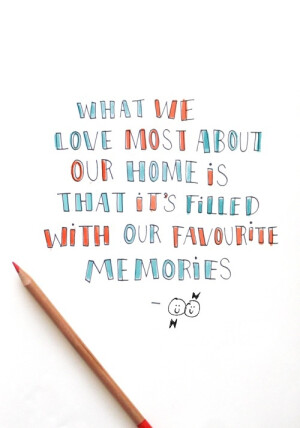 WHAT WE
LOVE MOST ABOUT
OUR HOME iS
THAT iT'S FiLLED
WiTH OUR FAVOURiTE
MEMORiES